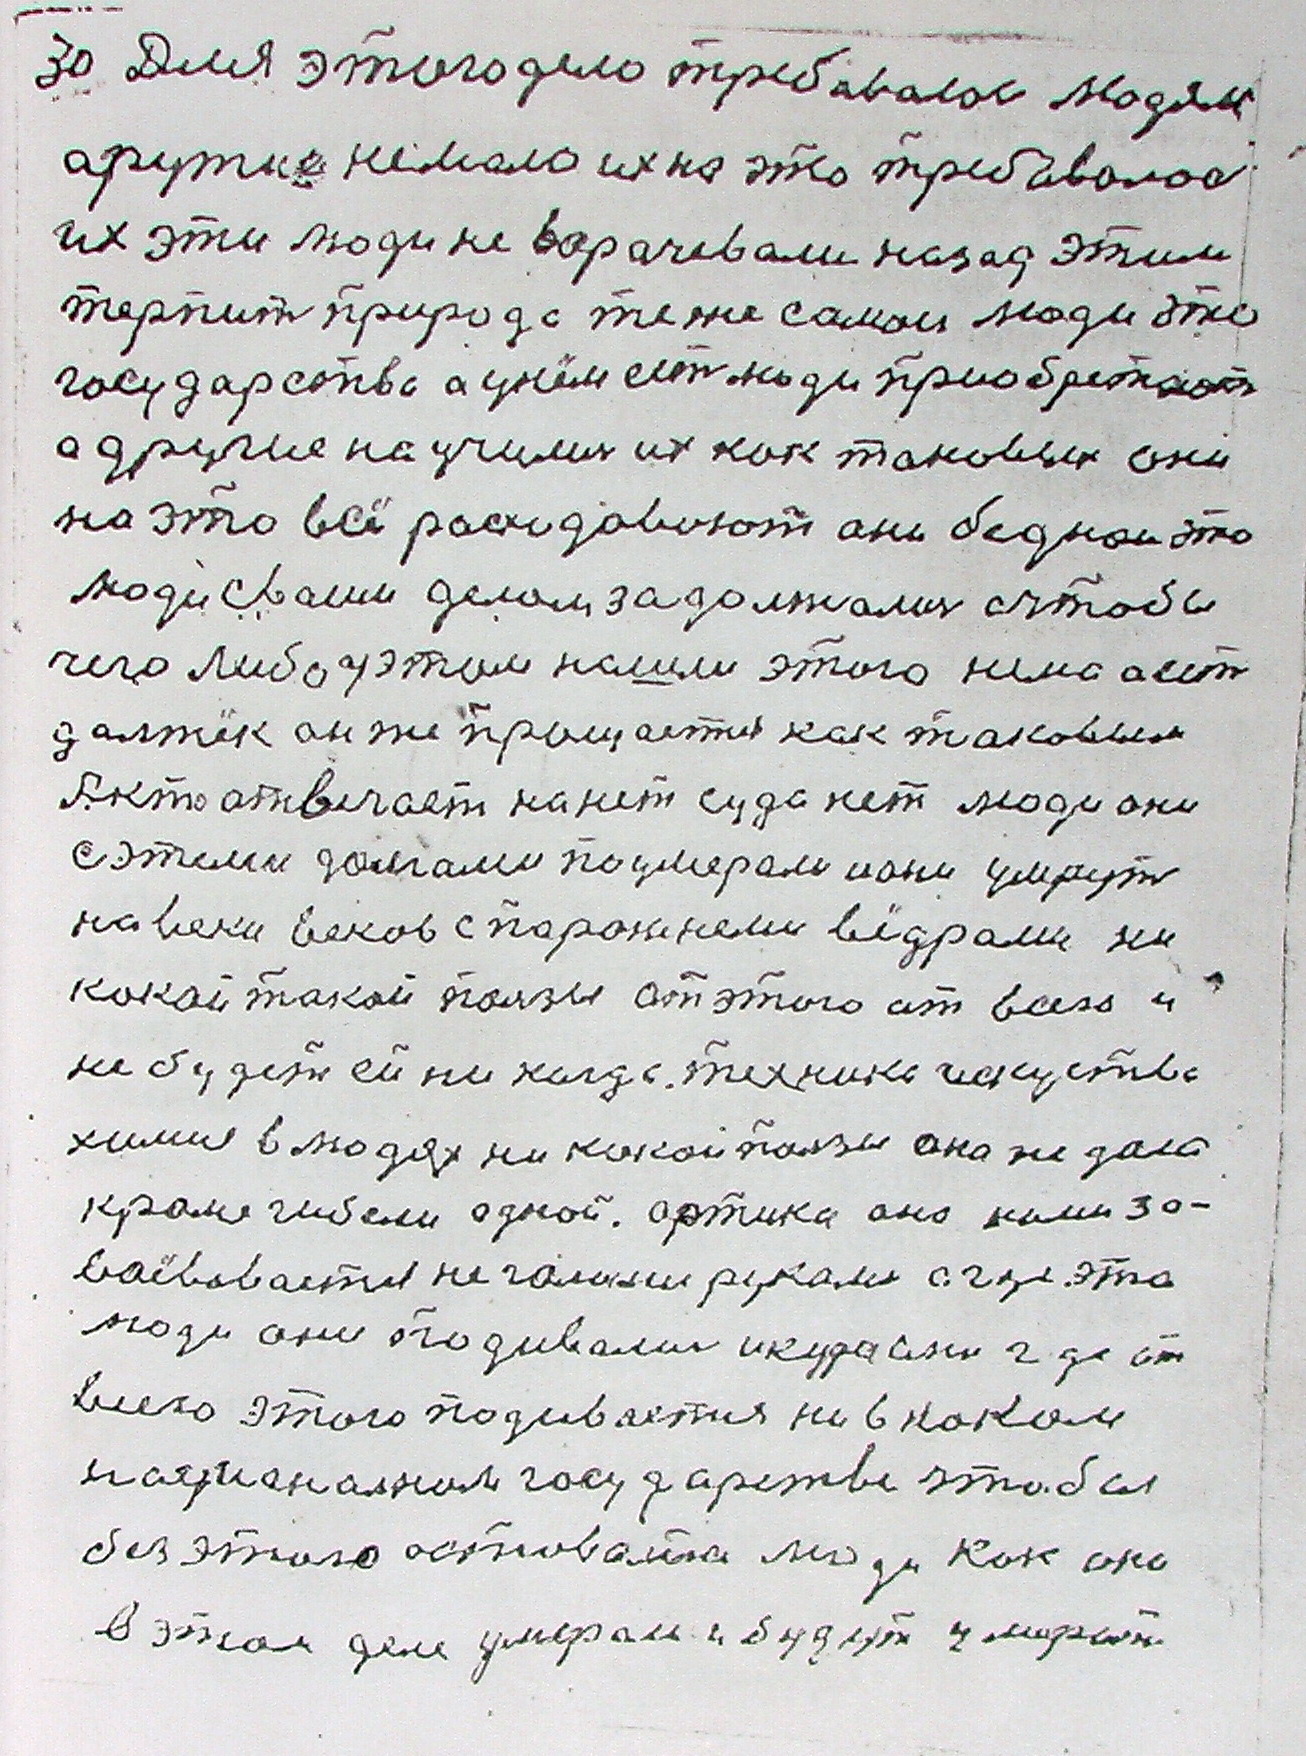 30 Для этого дело требавалос людям
арутие немало их на это требавалос
их эти люди не ворачевали назад этим
терпит природа теже самаи люди это
государства а унём ест люди приобретают
а другие научилис их как таковых они
на это всё расхидавиют они беднаи это
люди сваим делом задолжалис счтобы
чего либо уэтом нашли этого нема а ест
далжёк он же прощается как таковым
Акто отвечает на нет суда нет люди они
с этими долгами поумерали иони умрут
навеки веков с парожнеми вёдрами ни
какой такой ползы от этого от всего и
не будет ей ни когда. техника искуства
химия в людях ни какой ползы она не дала
краме гибели одной. артика она ними за-
ваёвовается не голыми руками а где эта
люди они подивалис икуда они где от
всего этого подивается ни в каком
нацианалном государстве чтобы
без этого астовалис люди как они
в этом деле умерали и будут умират